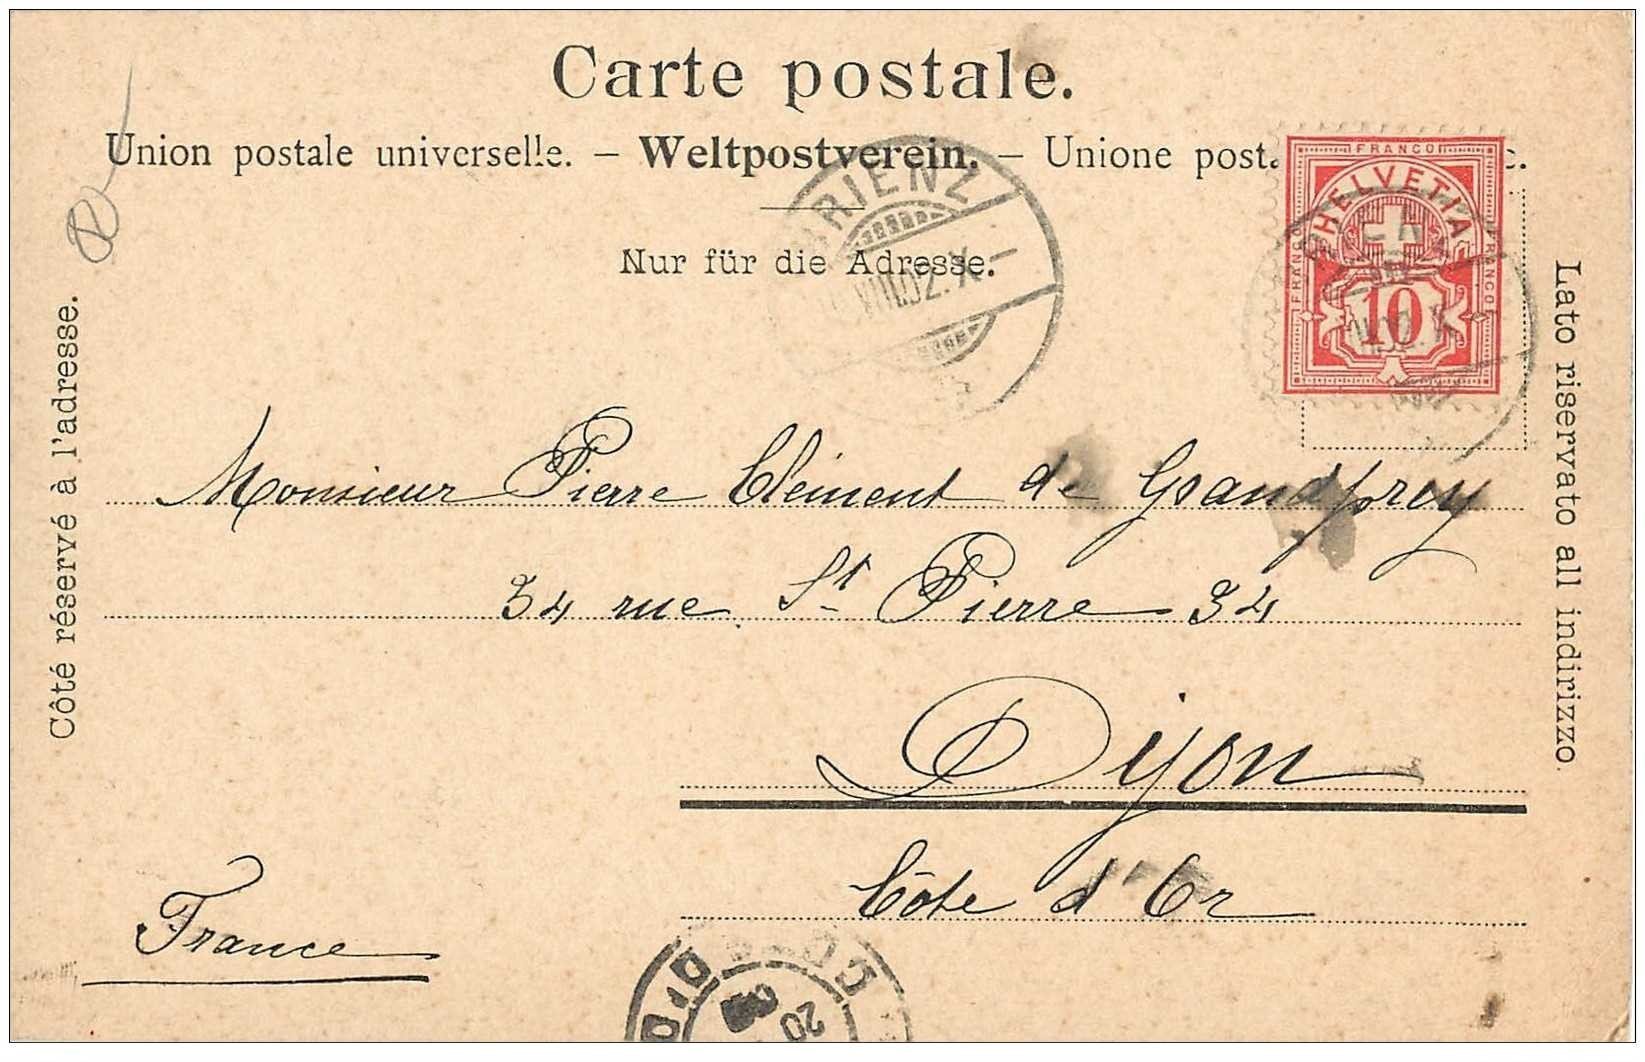 Carte postale.
Union postale universelle. – Weltpostverein. – Unione
Nur für die Adresse.
Côté réservé à l'adresse.
Lato riservato all indirizzo
BRIENZ
VIII.02.X–
FRANCO
FRANCO
FRANCO
HELVETIA
10
Monsieur Pierre Clément de Grandprey
34 rue St Pierre 34
Dijon
Côte d'Or
France
20